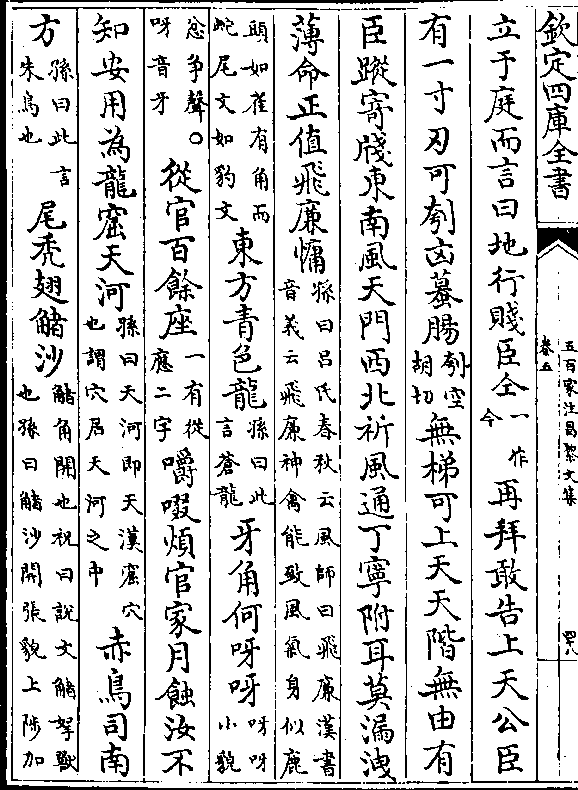 欽定四庫全書
五百家注昌黎文集
卷五
四八
立于庭而言曰地行賤臣仝一作今再拜敢告上天公臣
有一寸刃可刳凶蟇腸刳空胡切無梯可上天天階無由有
臣蹤寄牋東南風天門西北祈風通丁寧附耳莫漏洩
薄命正值飛廉慵孫曰吕氏春秋云風師曰飛廉漢書音義云飛廉神禽能致風氣身似鹿
頭如雀有角而蛇尾文如豹文東方青色龍孫曰此言蒼龍牙角何呀呀呀呀小貌
忿爭聲呀音牙○從官百餘座一有從應二字嚼啜煩官家月蝕汝不
知安用為龍窟天河孫曰天河即天漢窟穴也謂穴居天河之中赤鳥司南
方孫曰此言朱鳥也尾秃翅觰沙觰角開也祝曰説文觰拏獸也孫曰觰沙開張貌上陟加